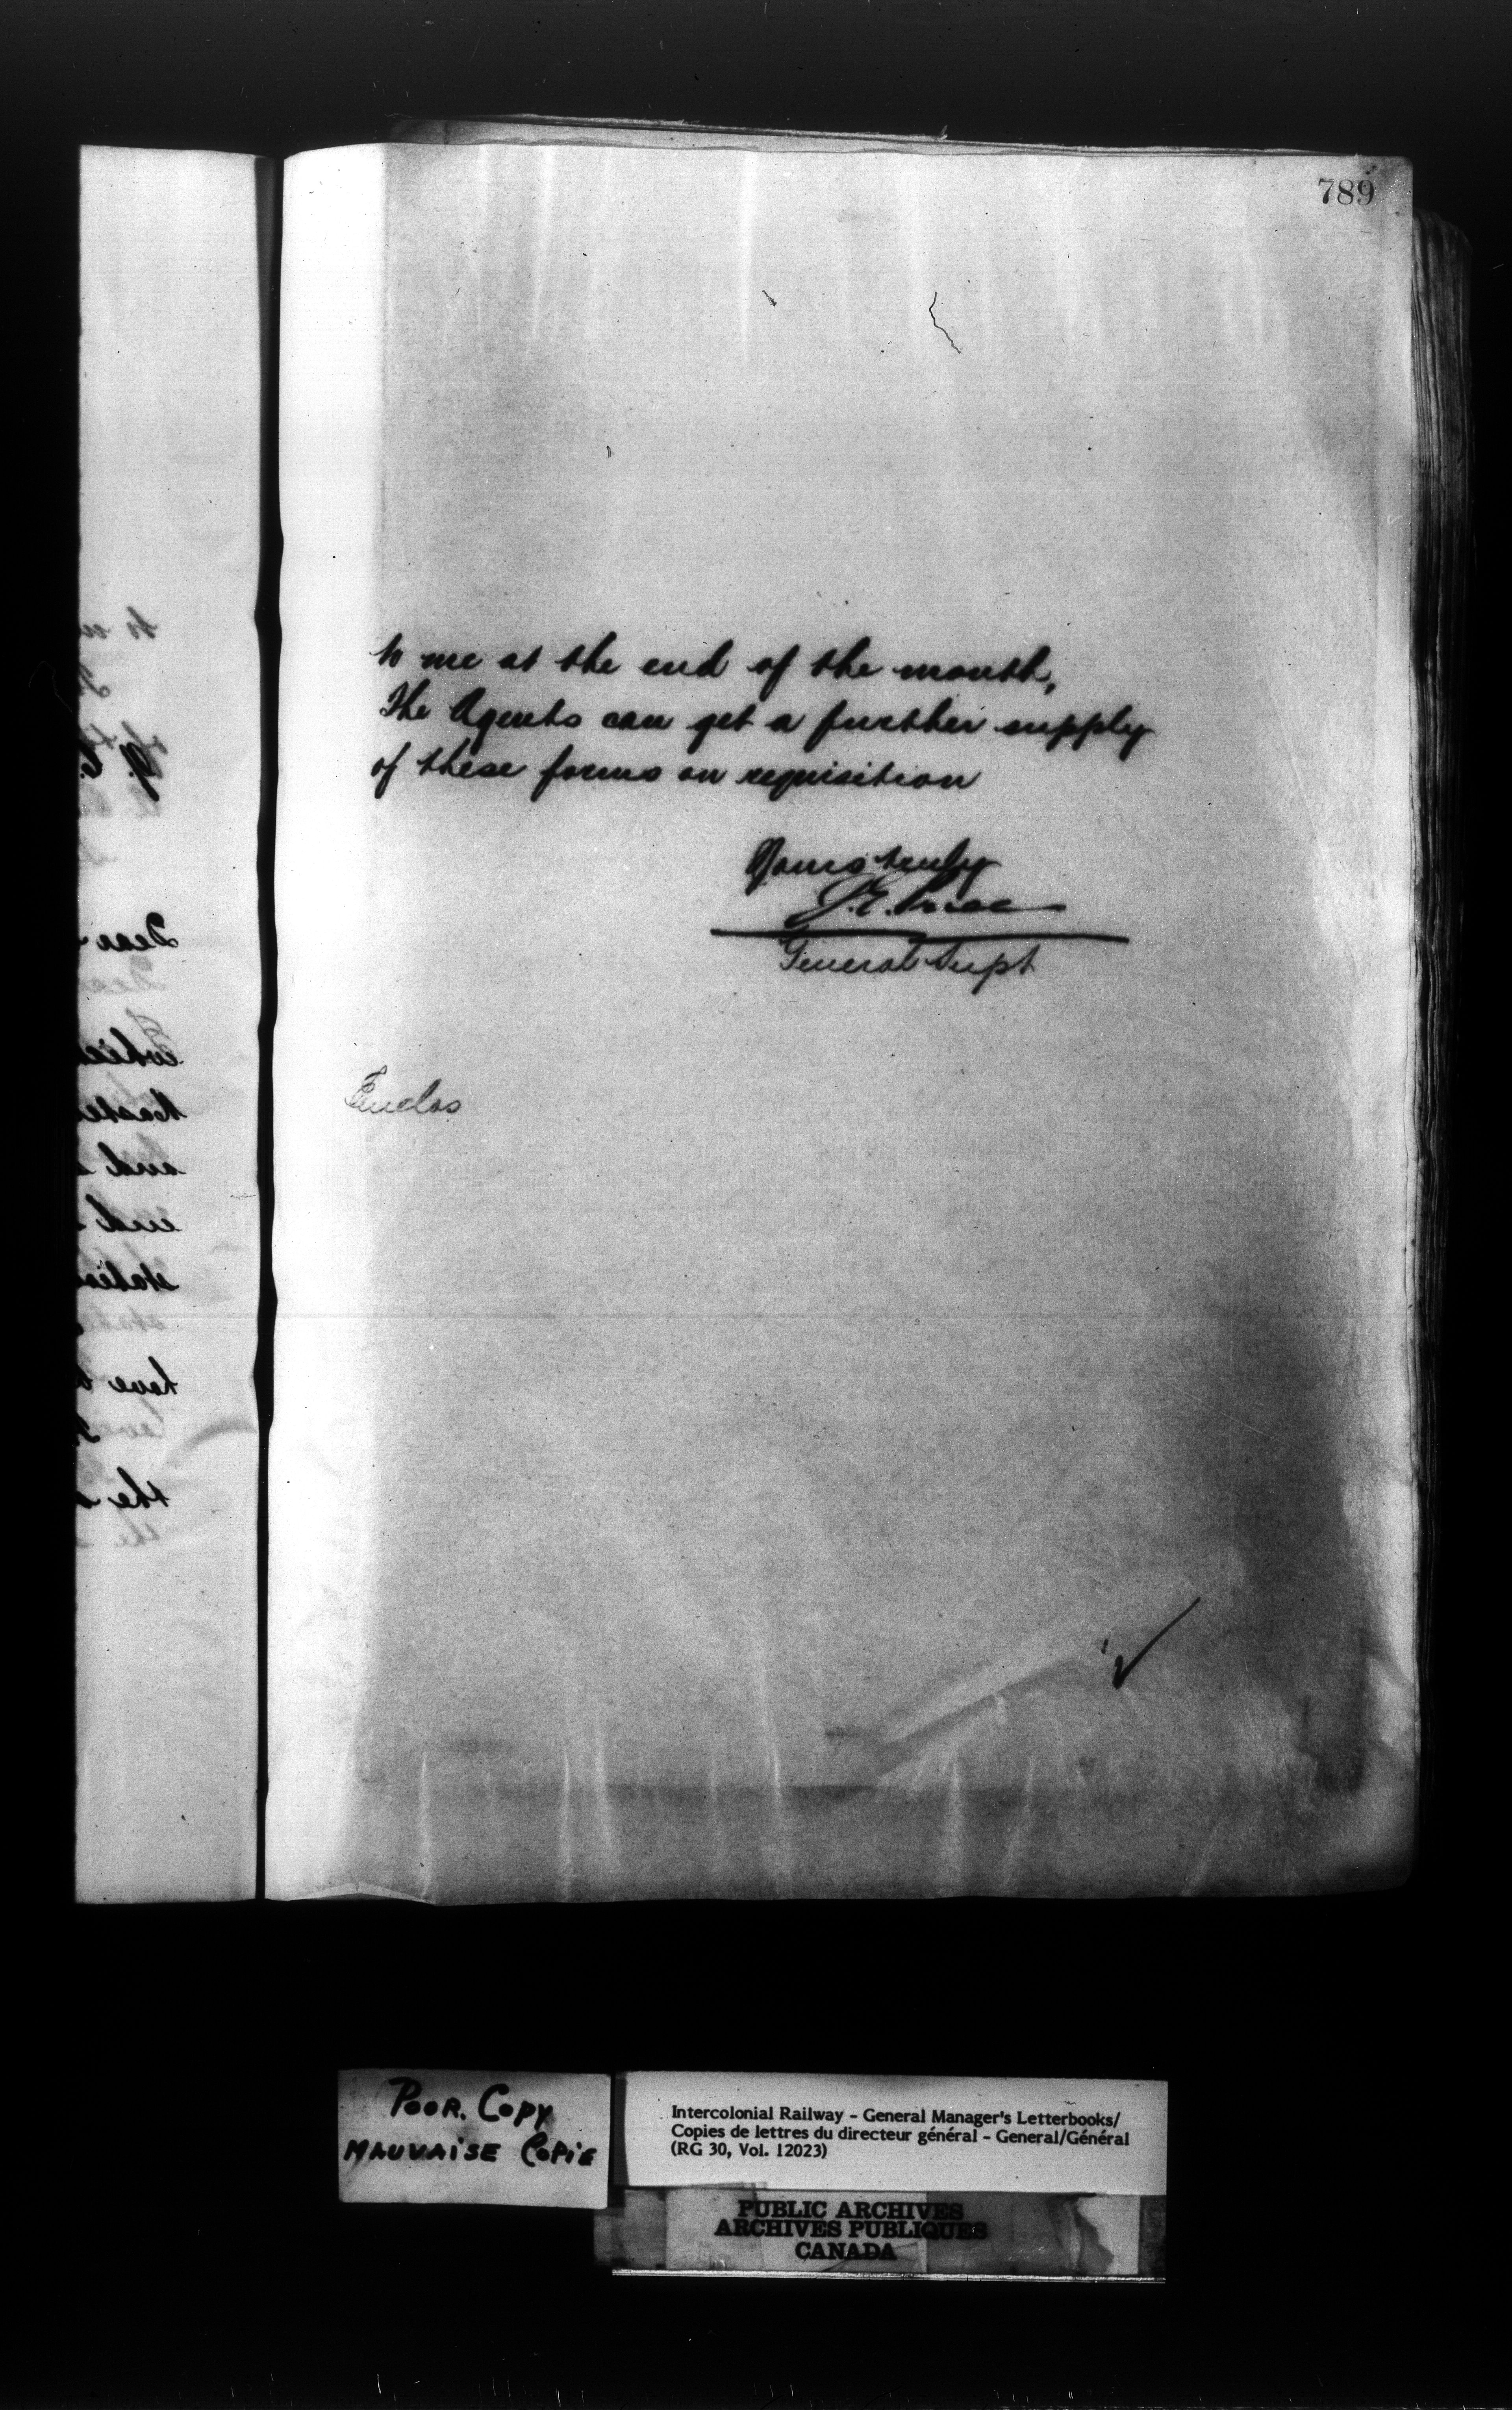 789
to me at the end of the month,
The Agents can get a further supply
of these forms on requisition
Yours truly
J.E. Price
General Supt
Enclos
Dear
and
end
have
the
POOR. COPY
MAUVAISE COPIE
Intercolonial Railway - General Manager's Letterbooks/
Copies de lettres du directeur général - General/Général
(RG 30, Vol. 12023)
PUBLIC ARCHIVES
ARCHIVES PUBLIQUES
CANADA